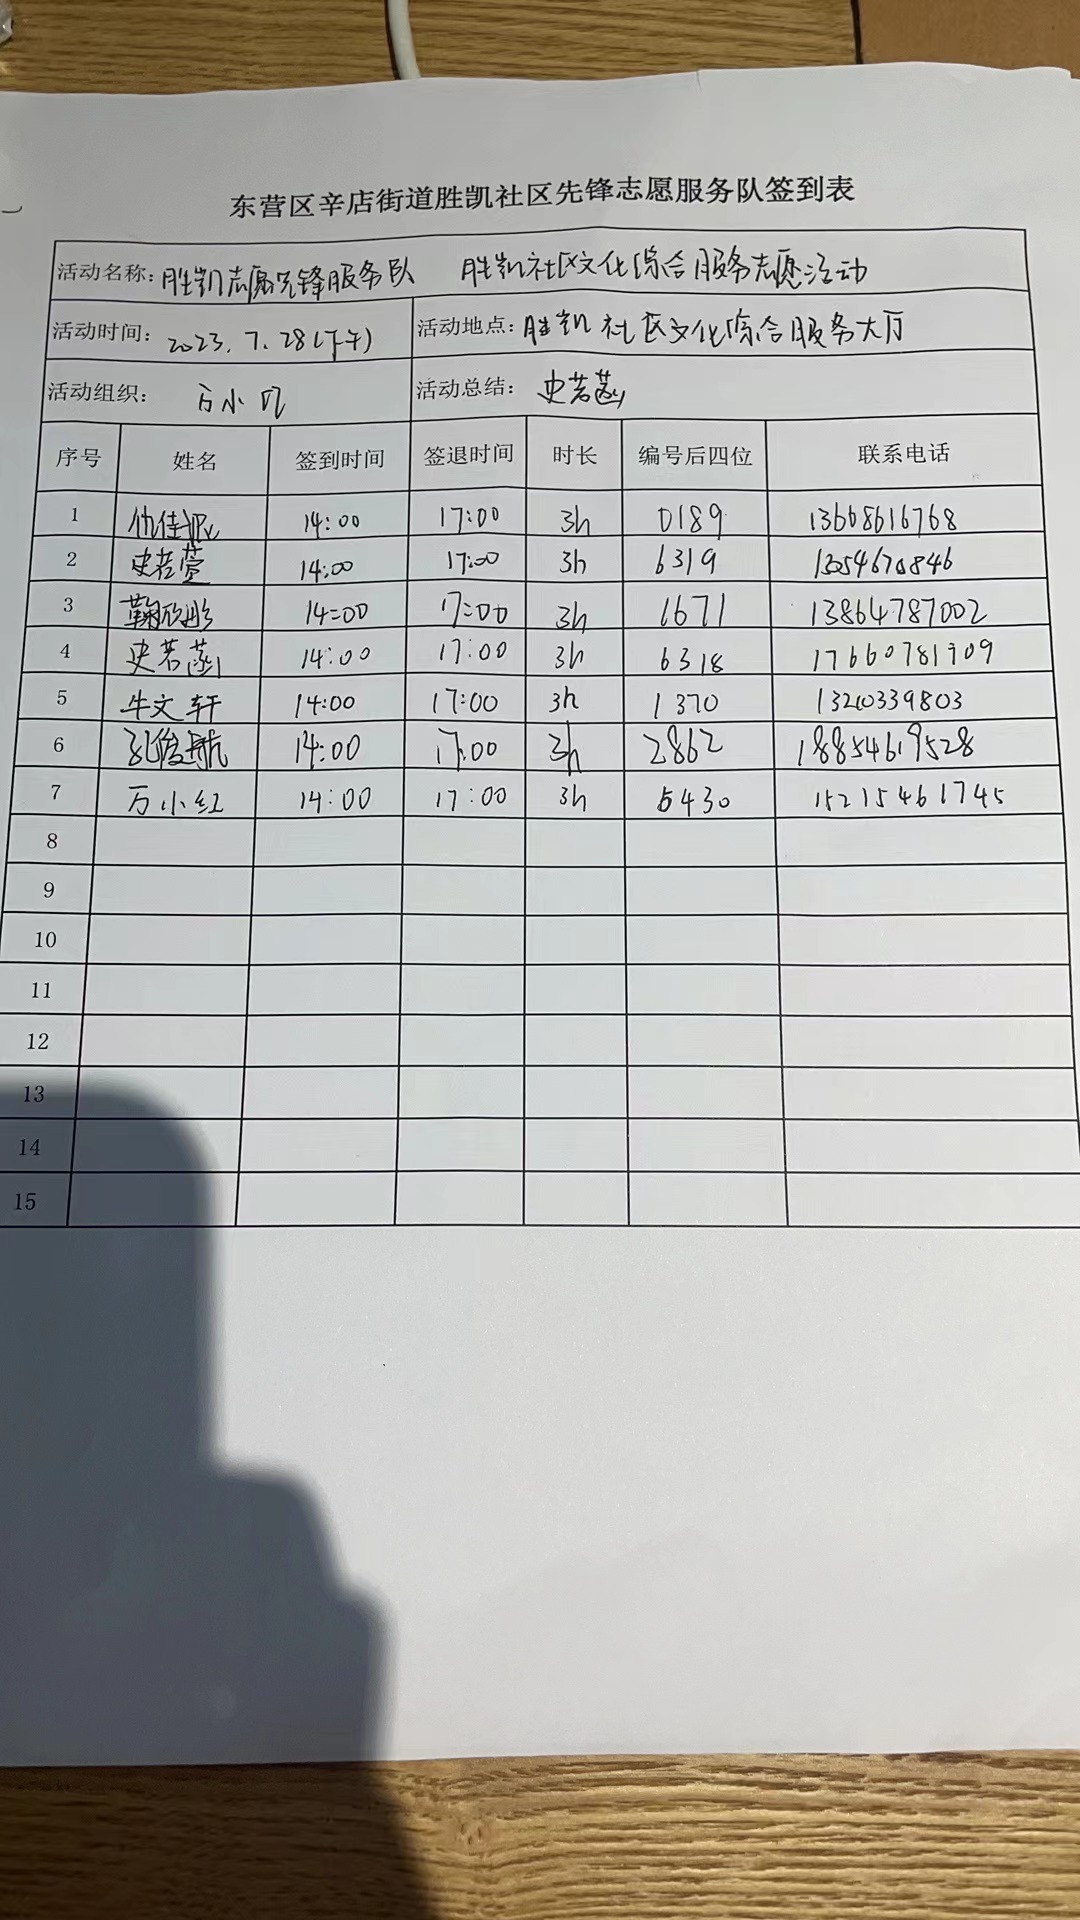 东营区辛店街道胜凯社区先锋志愿服务队签到表
活动名称：胜凯志愿先锋服务队 胜凯社区文化综合服务志愿活动
活动时间： 2023.7.28(下午) 活动地点：胜凯社区文化综合服务大厅
活动组织： 万小 活动总结： 史若菡
序号 姓名 签到时间 签退时间 时长 编号后四位 联系电话
1 佳 14:00 17:00 3h 0189 13608616768
2 史若萱 14:00 17:00 3h 6319 13054670846
3 鞠欣彤 14:00 17:00 3h 1671 13864787002
4 史若菡 14:00 17:00 3h 6318 17660781909
5 牛文轩 14:00 17:00 3h 1370
6 孔俊航 14:00 17:00 3h 2862 18854619528
7 万小红 14:00 17:00 3h 6430 15215461745
8
9
10
11
12
13
14
15